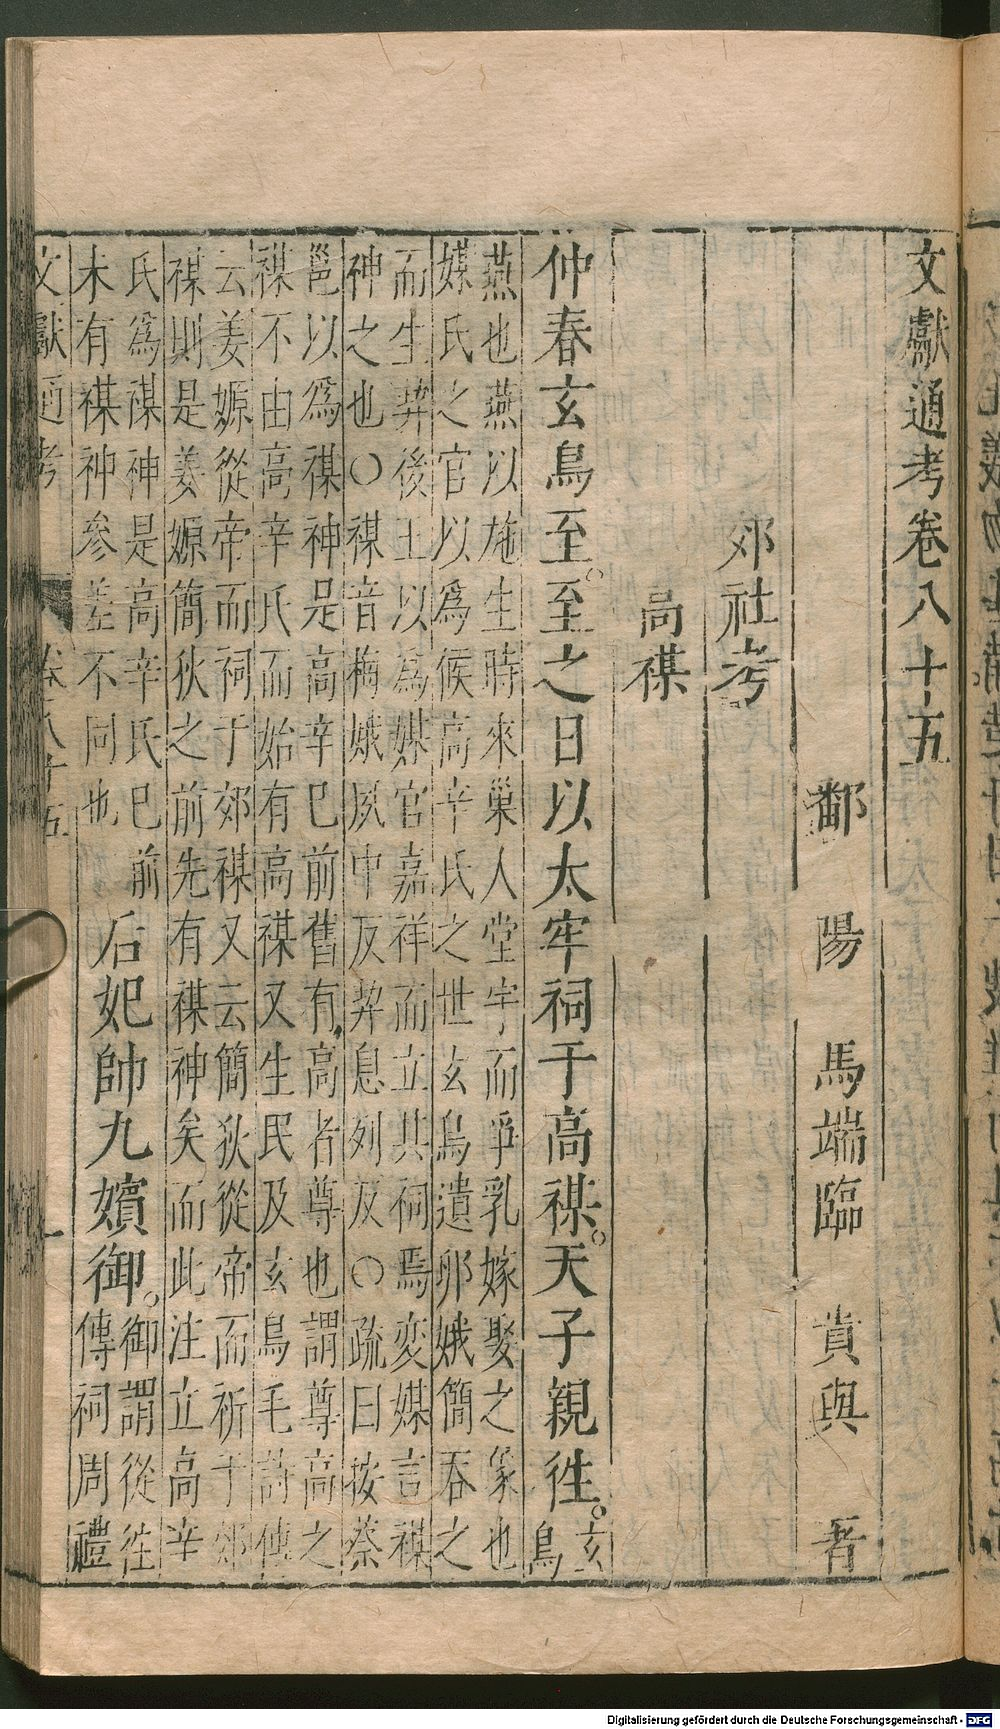 文獻通考卷八十五
鄱 陽 馬端臨 貴與 著
郊社考
高禖
仲春玄鳥至。至之日以太牢祠于高禖。天子親徃。玄鳥
燕也燕以施生時來巢人堂宇而孚乳嫁娶之象也
媒氏之官以為候高辛氏之世玄鳥遺卵娀簡吞之
而生契後王以為媒官嘉祥而立其祠焉變媒言禖
神之也○禖音梅娀夙中反契息列反○疏曰按蔡
邕以為禖神是高辛巳前舊有高者尊也謂尊高之
禖不由高辛氏而始有高禖又生民及玄鳥毛詩傳
云姜嫄從帝而祠于郊禖又云簡狄從帝而祈于郊
禖則是姜嫄簡狄之前先有禖神矣而此注立高辛
氏為禖神是高辛氏巳前
未有禖神參差不同也
后妃帥九嬪御。御謂從徃
傳祠周禮
文獻通考 卷八十五 一
Digitalisierung gefördert durch die Deutsche Forschungsgemeinschaft - DFG